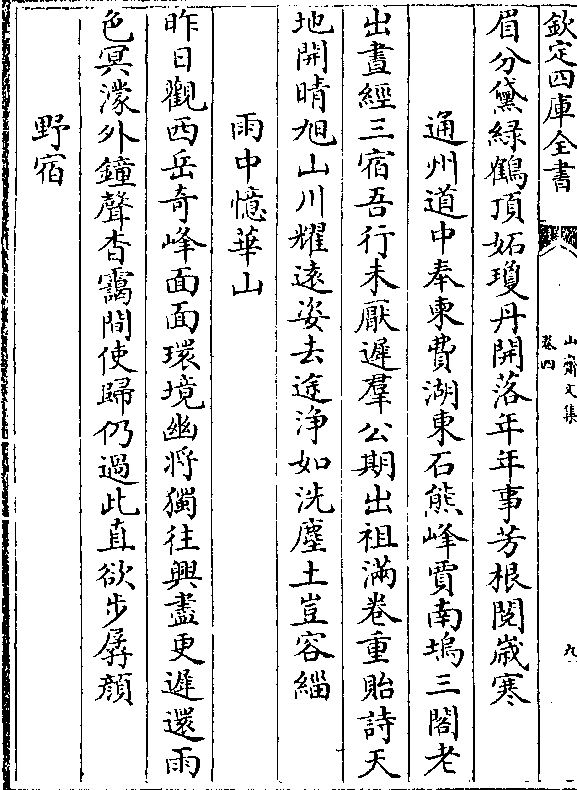 欽定四庫全書
山齋文集
卷四
九
眉分黛綠鶴頂妬瓊丹開落年年事芳根閱嵗寒
通州道中奉柬費湖東石熊峰賈南塢三閣老
出晝經三宿吾行未厭遲羣公期出祖滿卷重貽詩天
地開晴旭山川耀遠姿去途淨如洗塵土豈容緇
雨中憶華山
昨日觀西岳奇峰面面環境幽將獨往興盡更遲還雨
色冥濛外鐘聲杳靄間使歸仍過此直欲步孱顔
野宿